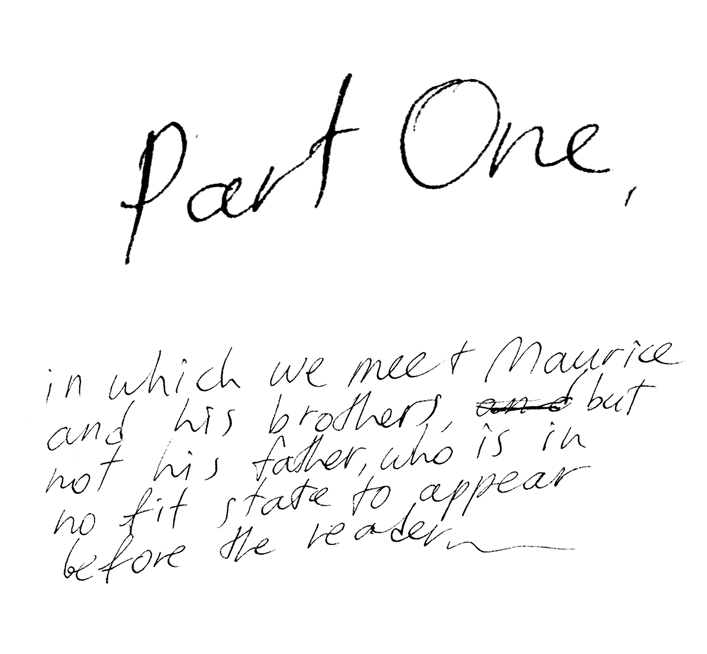 Part One,
in which we meet Maurice
and his brothers, and but
not his father, who is in
no fit state to appear
before the reader